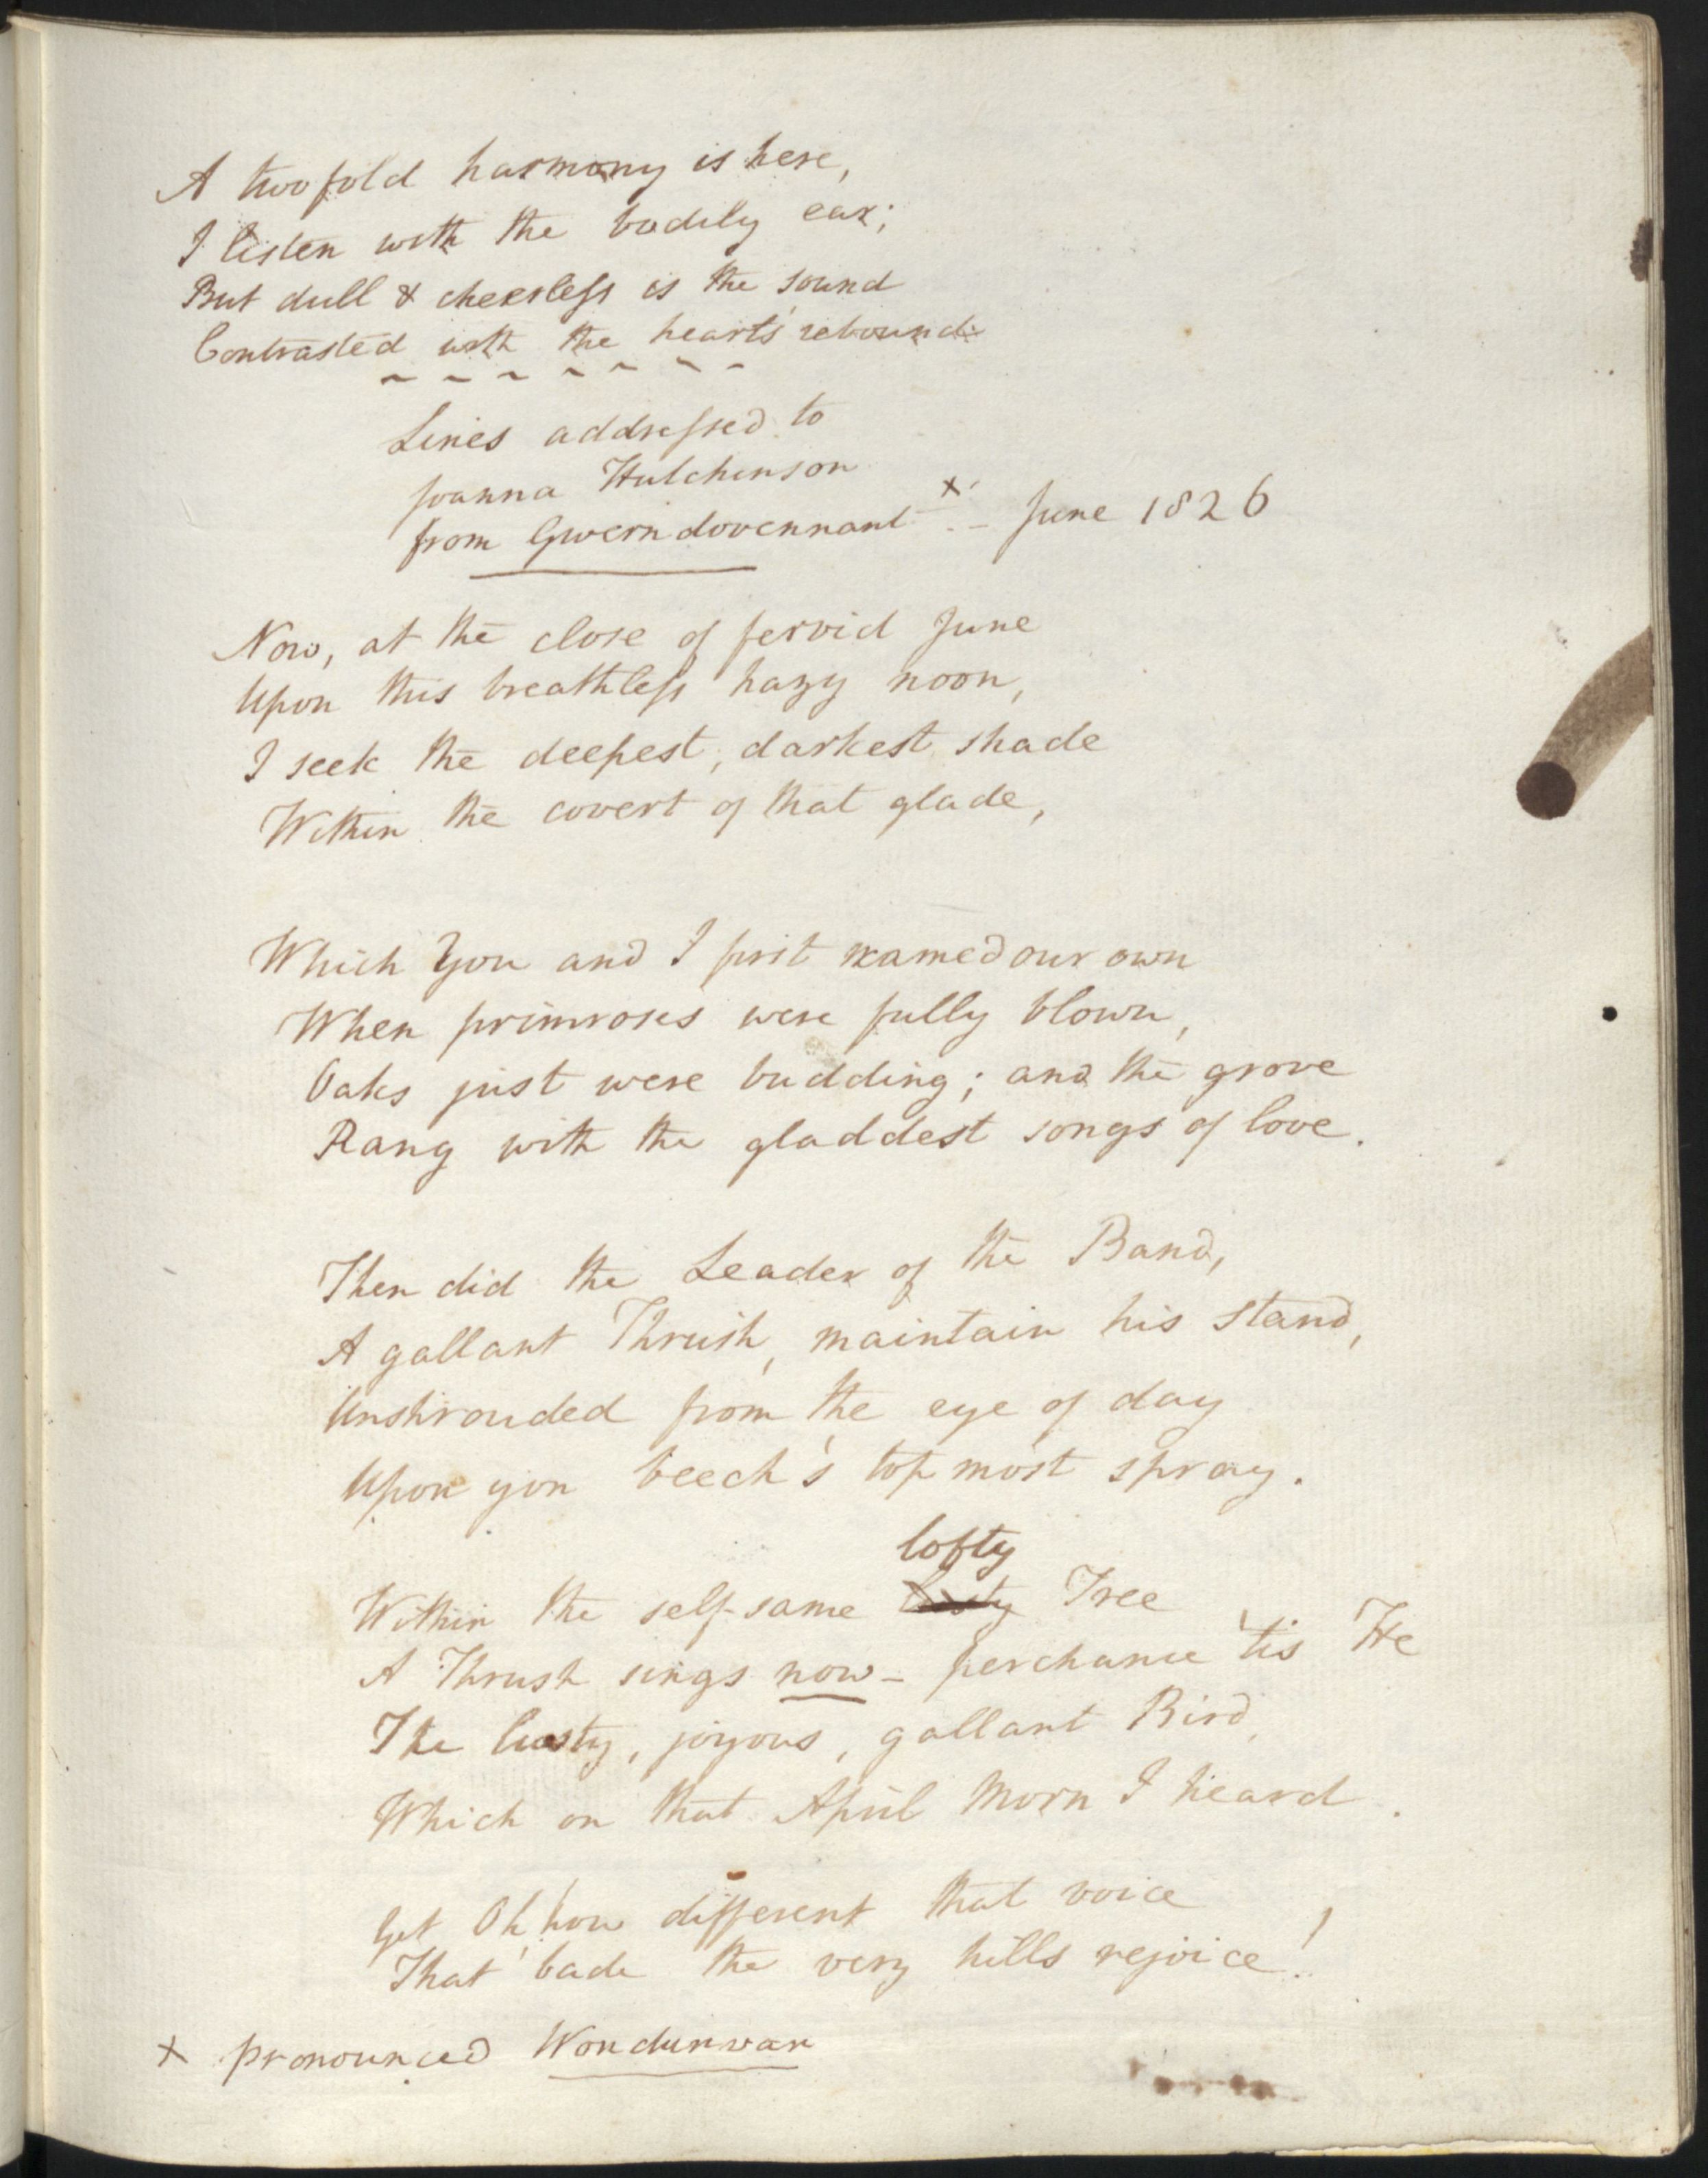 A twofold harmony is here,
I listen with the bodily ear;
But dull & cheerless is the sound
Contrasted with the heart's rebound.
Lines addressed to
Joanna Hutchinson
from Gwerndovennant x - June 1826
Now, at the close of fervid June
Upon this breathless hazy noon,
I seek the deepest, darkest shade
Within the covert of that glade,
Which you and I first named our own
When primroses were fully blown,
Oaks just were budding; and the grove
Rang with the gladdest songs of love.
Then did the Leader of the Band,
A gallant Thrush, maintain his stand,
Unshrouded from the eye of day
Upon yon beech's topmost spray.
lofty
Within the self-same lusty Tree
A Thrush sings now - perchance 'tis He
The lusty, joyous, gallant Bird,
Which on that April Morn I heard.
Yet Oh! how different that voice
That bade the very hills rejoice!
x pronounced Wondunvan